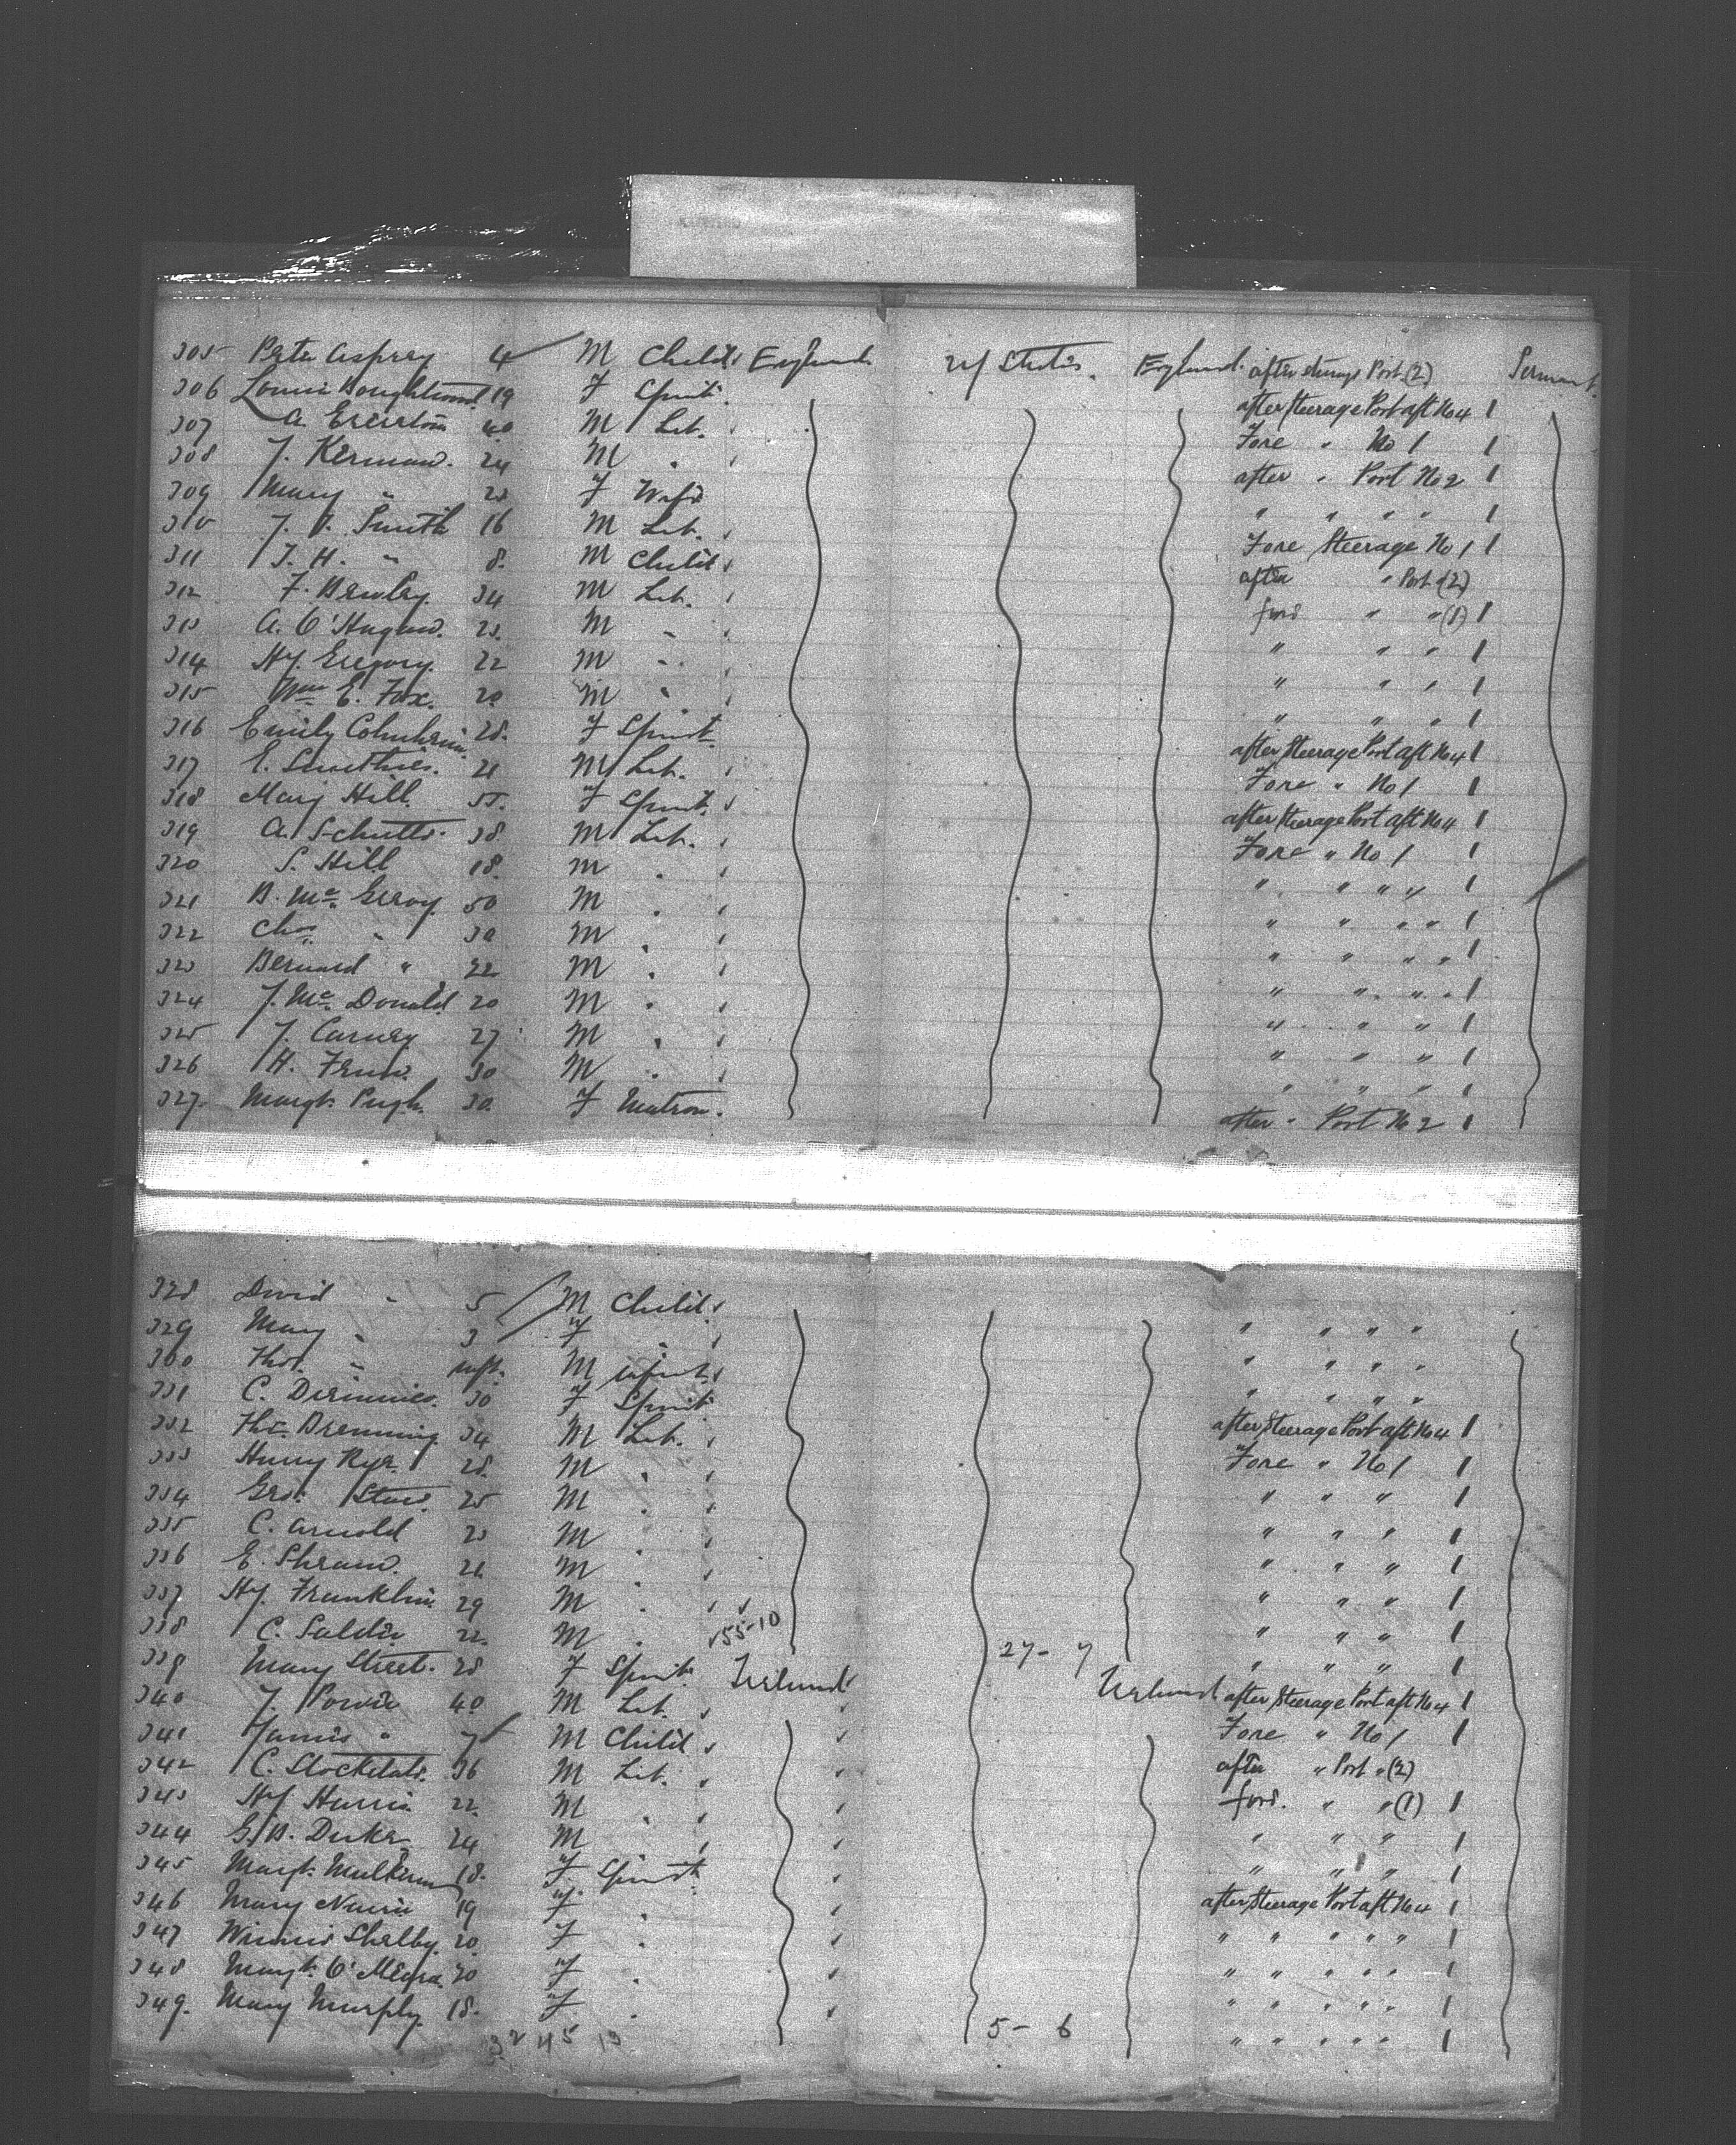 305 Peter Asprey 4 M Child England U/ States. England. after steerage Port (2) Perman't
306 19 F Spinst. after Steerage Port aft No 4 1
307 A. 40 M Lab. Fore " No 1 1
308 J. Kerman. 24 M " after " Port No 2 1
309 Mary " 23 F Wife " " " " 1
310 J. Smith 16 M Lab. Fore Steerage No 1 1
311 J. H. " 8. M Child after " Port (2)
312 F. 34 M Lab. ford " " (1) 1
313 A. O'Hagan. 23. M " " " " 1
314 Hy. Gregory. 22 M " " " " 1
315 Wm E. Fox. 20. M " " " " 1
316 Emily 28. F Spinst. after Steerage Port aft No 4 1
317 E. Smethies. 21 M Lab. Fore " No 1 1
318 Mary Hill. 55. F Spinst. after Steerage Port aft No 4 1
319 A. 38. M Lab. Fore " No 1 1
320 S. Hill 18. M " " " " " 1
321 B. Mc 50 M " " " " " 1
322 Chas " 30 M " " " " " 1
323 Bernard " 22 M " " " " " 1
324 J. Mc Donald 20 M " " " " 1
325 J. Carney 27 M " " " " 1
326 H. 30 M " " " " 1
327. Margt. Pugh. 30. F Matron. after " Port No 2 1
328 David " 5 M Child " " " "
329 Mary " 3 F " " " " "
330 Thos. " inft. M infant " " " "
331 C. 30 F Spinst after Steerage Port aft No 4 1
332 Thos. 34 M Lab. Fore " No 1 1
333 Harry 28. M " " " " 1
334 Geo. 25 M " " " " 1
335 C. Arnold 23 M " " " " 1
336 E. 21 M " " " " 1
337 Hy. Franklin 29 M " " " " 1
338 C. 22. M " 55-10 27-7 " " " 1
339 Mary Street. 28 F Spinst. Ireland Ireland after Steerage Port aft No 4 1
340 J. Power 40 M Lab. Fore " No 1 1
341 James " 7 M Child after " Port " (2)
342 C. 36 M Lab. ford. " " (1) 1
343 Hy Harris 22. M " " " " 1
344 G. B. 24 M " " " " 1
345 Margt. 18. F Spinst. after Steerage Port aft No 4 1
346 Mary 19 F " " " " " " 1
347 Winnie Shelby. 20. F " " " " " " 1
348 Margt. O'Meara. 20 F " " " " " " 1
349. Mary Murphy. 18. F " 5-6 " " " " " 1